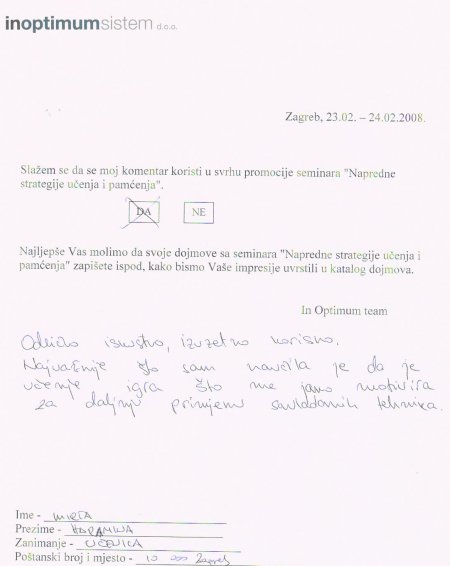 inoptimumsistem d.o.o.
Zagreb, 23.02. – 24.02.2008.
Slažem se da se moj komentar koristi u svrhu promocije seminara "Napredne
strategije učenja i pamćenja".
DA NE
Najljepše Vas molimo da svoje dojmove sa seminara "Napredne strategije učenja i
pamćenja" zapišete ispod, kako bismo Vaše impresije uvrstili u katalog dojmova.
In Optimum team
Odlično iskustvo, izuzetno korisno.
Najvažnije što sam naučila je da je
učenje igra što me jako motivira
za daljnju primjenu savladanih tehnika.
Ime - MIRTA
Prezime -
Zanimanje - UČENICA
Poštanski broj i mjesto - 10 000 Zagreb